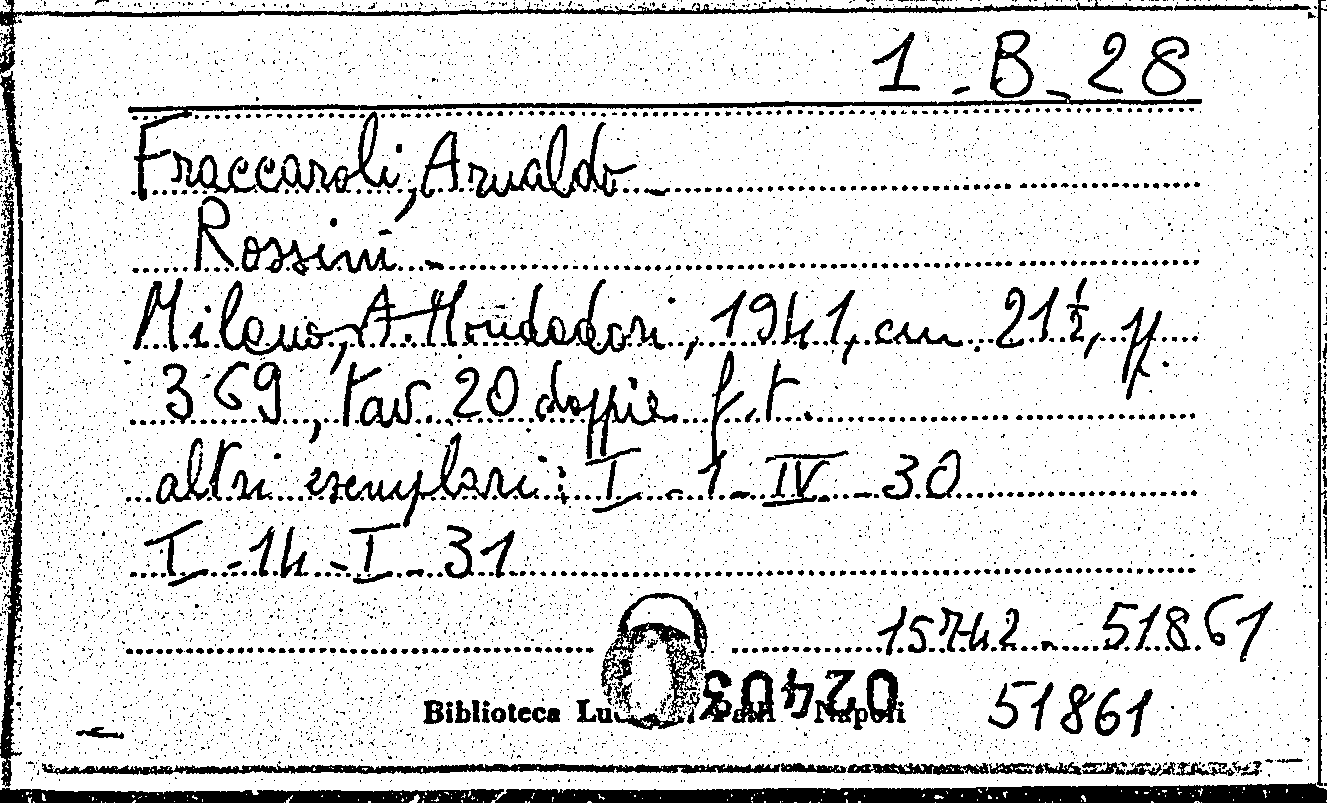 1 - B - 28
Fraccaroli, Arnaldo -
Rossini -
Milano, A. Mondadori, 1941, cm. 21½, pp.
369, tav. 20 doppie f.t.
altri esemplari: I - 1 - IV - 30
I - 14 - I - 31
15742 - 51861
02403
Biblioteca Napoli
51861